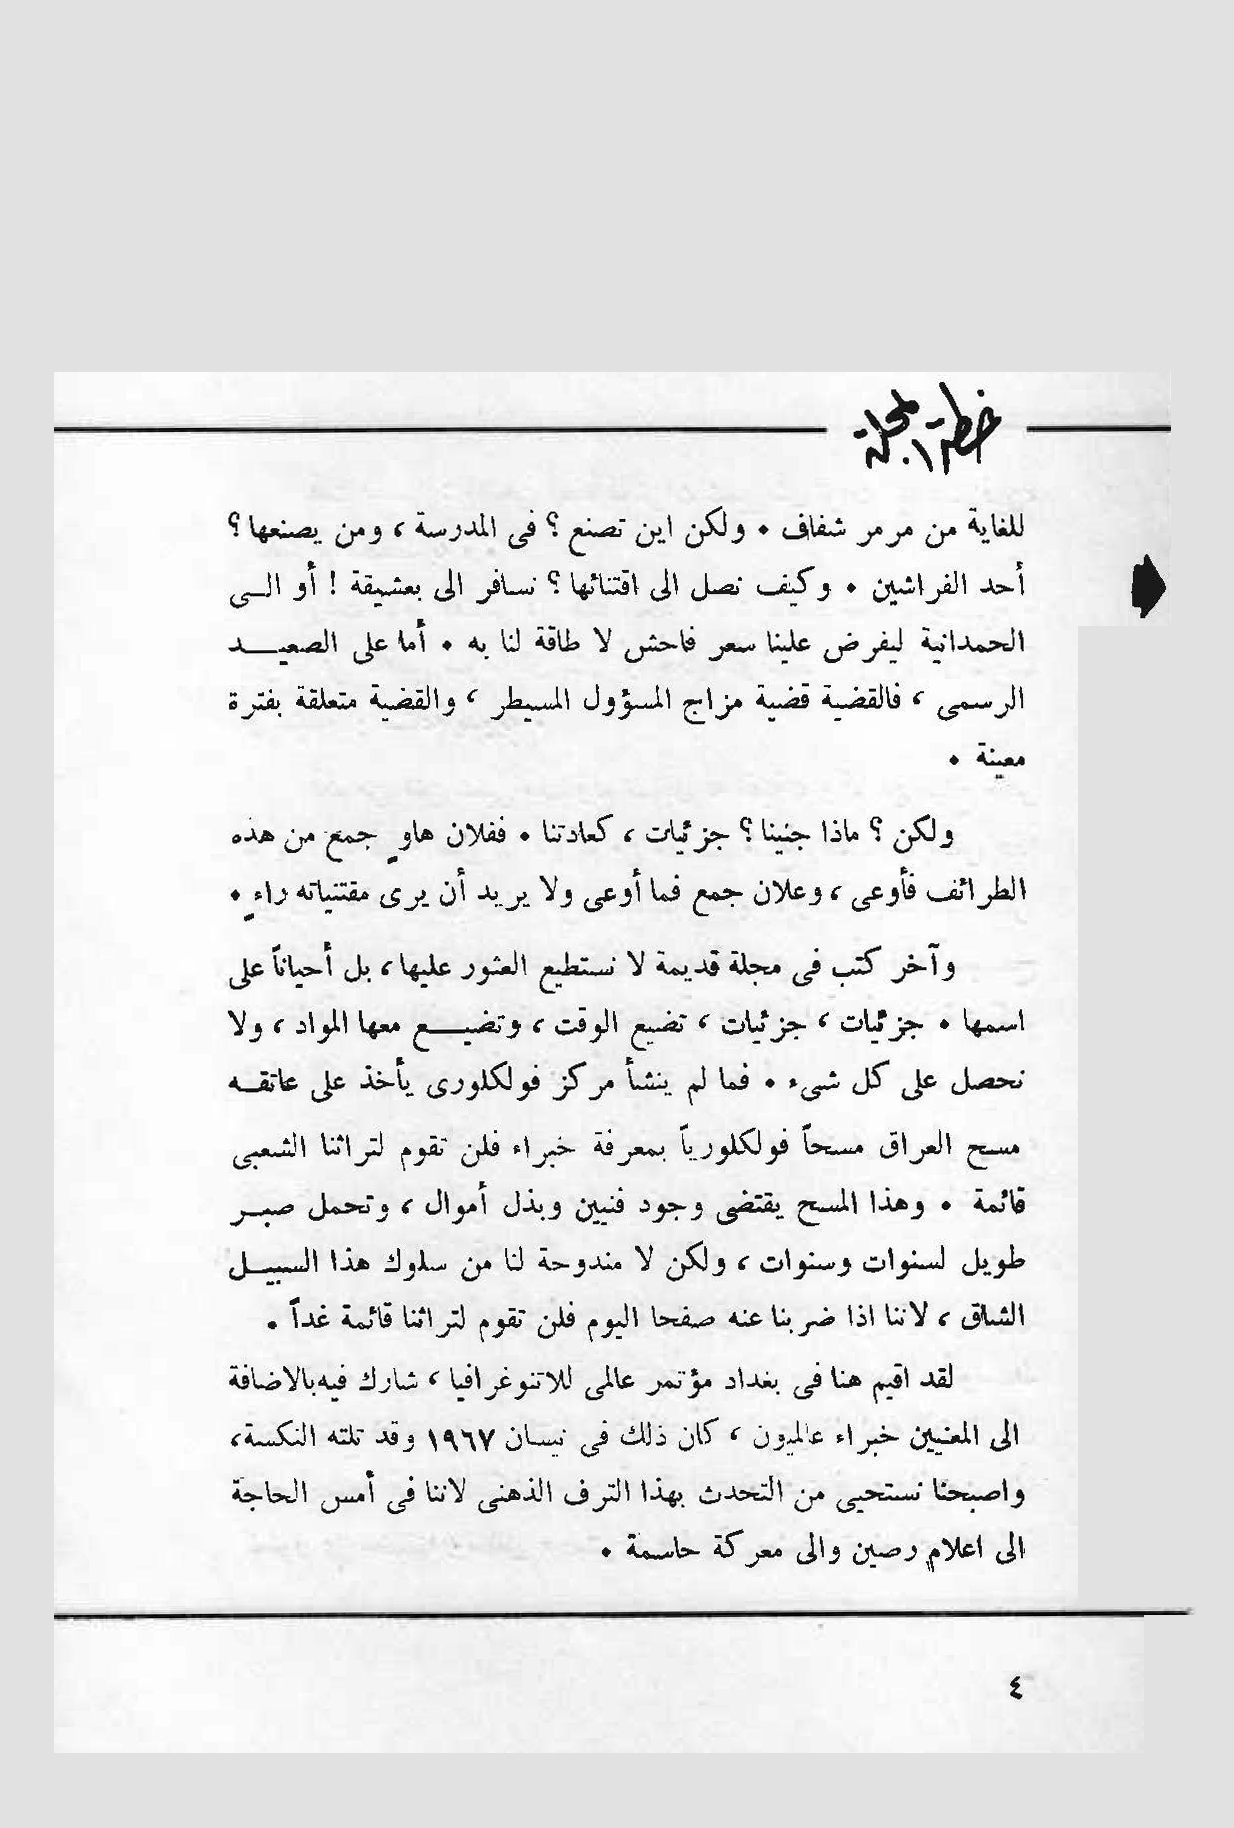 خطة المجلة
للغاية من مرمر شفاف ٠ ولكن اين تصنع ؟ فى المدرسة ، ومن يصنعها ؟
أحد الفراشين ٠ وكيف نصل الى اقتنائها ؟ نسافر الى بعشيقة ! أو الــى
الحمدانية ليفرض علينا سعر فاحش لا طاقة لنا به ٠ أما على الصعيــد
الرسمى ، فالقضية قضية مزاج المسؤول المسيطر ، والقضية متعلقة بفترة
معينة ٠
ولكن ؟ ماذا جنينا ؟ جزئيات ، كعادتنا ٠ ففلان هاوٍ جمع من هذه
الطرائف فأوعى ، وعلان جمع فما أوعى ولا يريد أن يرى مقتنياته راءٍ ٠
وآخر كتب فى مجلة قديمة لا نستطيع العثور عليها ، بل أحياناً على
اسمها ٠ جزئيات ، جزئيات ، تضيع الوقت ، وتضيــع معها المواد ، ولا
نحصل على كل شىء ٠ فما لم ينشأ مركز فولكلورى يأخذ على عاتقــه
مسح العراق مسحاً فولكلورياً بمعرفة خبراء فلن تقوم لتراثنا الشعبى
قائمة ٠ وهذا المسح يقتضى وجود فنيين وبذل أموال ، وتحمل صبــر
طويل لسنوات وسنوات ، ولكن لا مندوحة لنا من سلوك هذا السبيــل
الشاق ، لاننا اذا ضربنا عنه صفحا اليوم فلن تقوم لتراثنا قائمة غداً ٠
لقد اقيم هنا فى بغداد مؤتمر عالمى للاتنوغرافيا ، شارك فيه بالاضافة
الى المعنيين خبراء عالميون ، كان ذلك فى نيسان ١٩٦٧ وقد تلته النكسة ،
واصبحنا نستحيى من التحدث بهذا الترف الذهنى لاننا فى أمس الحاجة
الى اعلامٍ رصين والى معركة حاسمة ٠
٤